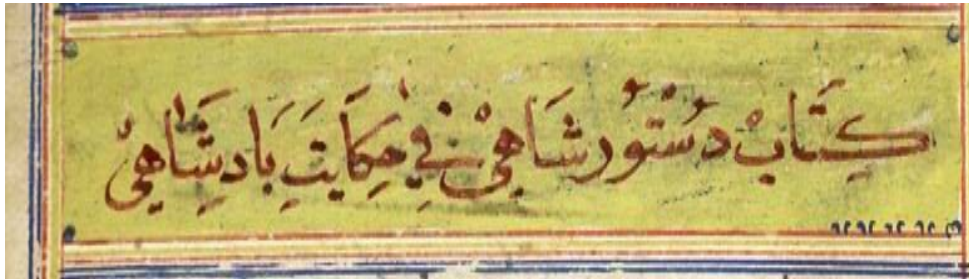 كِتَابْ دُسْتُورُ شَاهِيْ فِيْ حِكَايَتِ بَادِشَاهِيْ